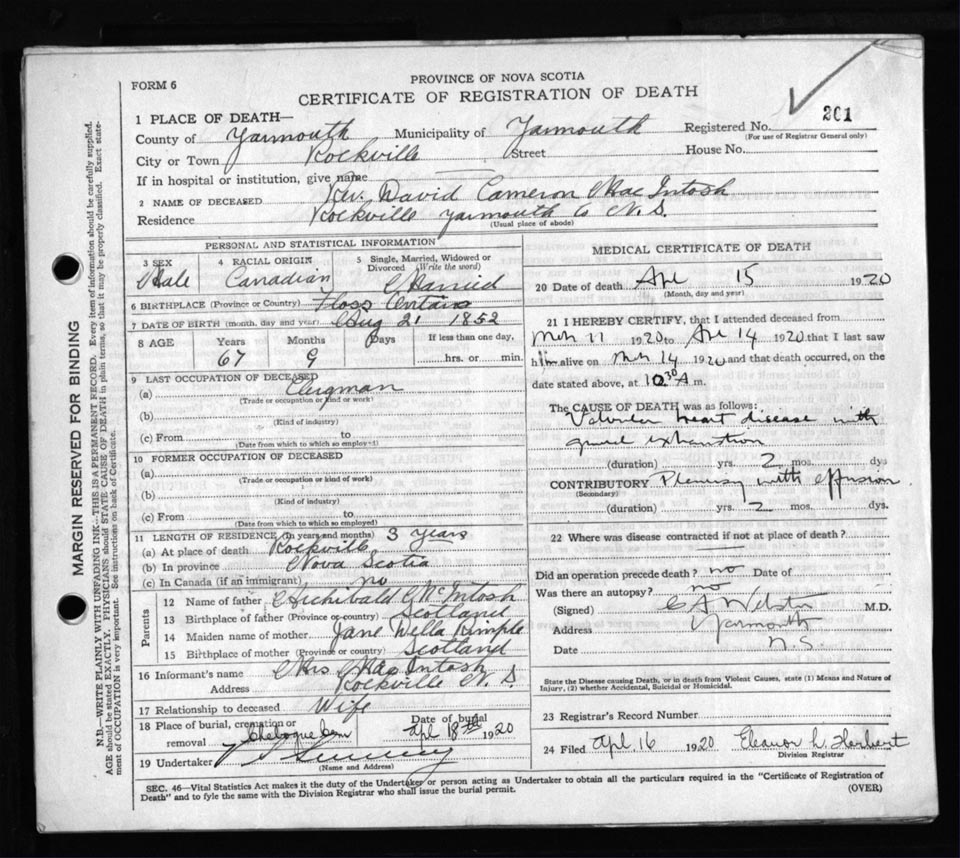 FORM 6
PROVINCE OF NOVA SCOTIA
CERTIFICATE OF REGISTRATION OF DEATH
1 PLACE OF DEATH—
County of Yarmouth Municipality of Yarmouth Registered No. 201
(For use of Registrar General only)
City or Town Rockville Street House No.
If in hospital or institution, give name
2 NAME OF DECEASED Rev. David Cameron Mac Intosh
Residence Rockville Yarmouth Co N.S.
(Usual place of abode)
PERSONAL AND STATISTICAL INFORMATION
3 SEX Male
4 RACIAL ORIGIN Canadian
5 Single, Married, Widowed or Divorced (Write the word) Married
6 BIRTHPLACE (Province or Country) Floss Ontario
7 DATE OF BIRTH (month, day and year) Aug 21 1852
8 AGE Years 67 Months 9 Days If less than one day, hrs. or min.
9 LAST OCCUPATION OF DECEASED
(a) Clergman
(Trade or occupation or kind or work)
(b)
(Kind of industry)
(c) From to
(Date from which to which so employed)
10 FORMER OCCUPATION OF DECEASED
(a)
(Trade or occupation or kind of work)
(b)
(Kind of industry)
(c) From to
(Date from which to which so employed)
11 LENGTH OF RESIDENCE (in years and months) 3 years
(a) At place of death Rockville
(b) In province Nova Scotia
(c) In Canada (if an immigrant) no
Parents
12 Name of father Archibald McIntosh
13 Birthplace of father (Province or country) Scotland
14 Maiden name of mother Jane Wella
15 Birthplace of mother (Province or country) Scotland
16 Informant's name Mrs MacIntosh
Address Rockville N. S.
17 Relationship to deceased Wife
18 Place of burial, cremation or removal Chebogue Cem Date of burial Apl 18th 1920
19 Undertaker
(Name and Address)
MEDICAL CERTIFICATE OF DEATH
20 Date of death Apr 15 1920
(Month, day and year)
21 I HEREBY CERTIFY, that I attended deceased from
Mch 11 1920 to Apr 14 1920 that I last saw
him alive on Mch 14 1920 and that death occurred, on the
date stated above, at 10.30 A m.
The CAUSE OF DEATH was as follows:
Valvular heart disease with
general exhaustion
(duration) yrs. 2 mos. dys
CONTRIBUTORY Pleurisy with effusion
(Secondary)
(duration) yrs. 2 mos. dys.
22 Where was disease contracted if not at place of death?
Did an operation precede death? no Date of
Was there an autopsy? no
(Signed) C A Webster M.D.
Address Yarmouth
Date N.S.
State the Disease causing Death, or in death from Violent Causes, state (1) Means and Nature of
Injury, (2) whether Accidental, Suicidal or Homicidal.
23 Registrar's Record Number
24 Filed Apl 16 1920 Eleanor L. Herbert
Division Registrar
SEC. 46—Vital Statistics Act makes it the duty of the Undertaker or person acting as Undertaker to obtain all the particulars required in the "Certificate of Registration of
Death" and to fyle the same with the Division Registrar who shall issue the burial permit. (OVER)
MARGIN RESERVED FOR BINDING
N.B.—WRITE PLAINLY WITH UNFADING INK—THIS IS A PERMANENT RECORD. Every item of information should be carefully supplied.
AGE should be stated EXACTLY. PHYSICIANS should STATE CAUSE OF DEATH in plain terms, so that it may be properly classified. Exact state-
ment of OCCUPATION is very important. See instructions on back of Certificate.